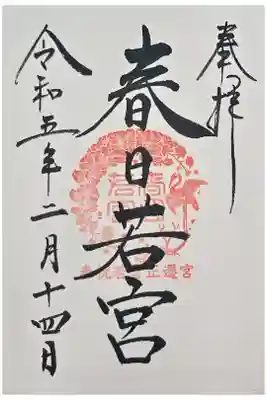 奉拝
春日若宮
令和五年二月十四日